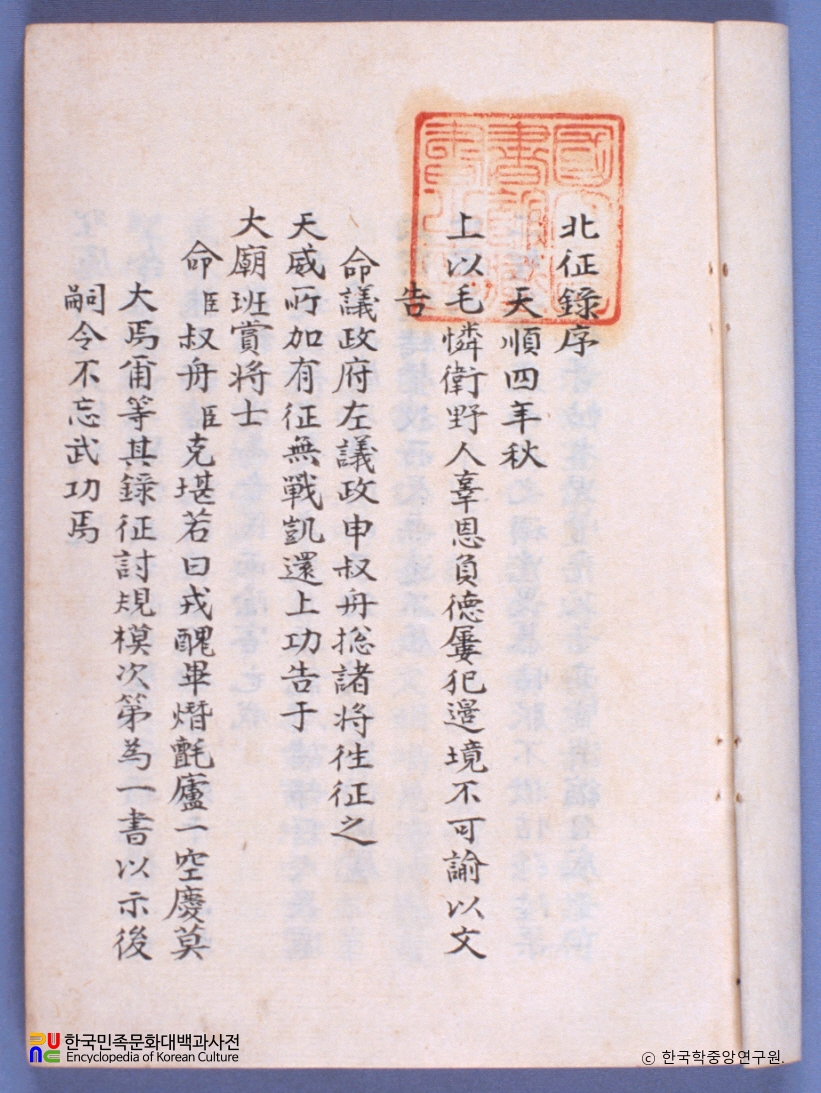 北征錄序
天順四年秋
上以毛憐衛野人辜恩負德屢犯邊境不可諭以文
告
命議政府左議政申叔舟摠諸將徃征之
天威所加有征無戰凱還上功告于
大廟班賞將士
命臣叔舟臣克堪若曰戎醜畢熸氈廬一空慶莫
大焉爾等其錄征討規模次第為一書以示後
嗣令不忘武功焉
한국민족문화대백과사전
Encyclopedia of Korean Culture
© 한국학중앙연구원.